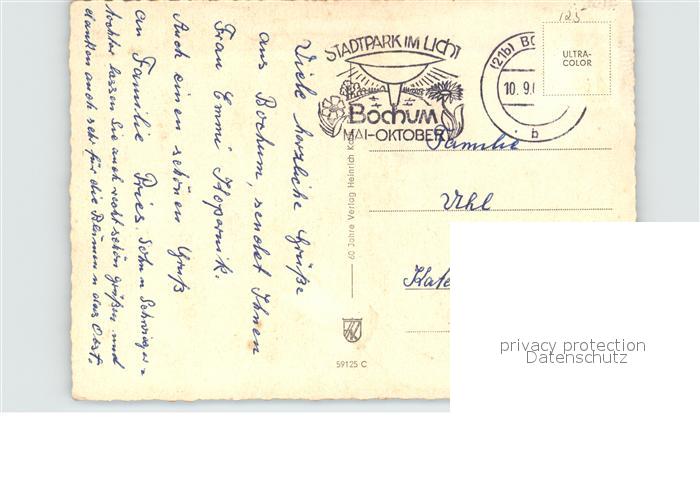 Viele herzliche Grüße
aus Bochum, sendet Ihnen
Frau Emmi Kopernik.
Auch einen schönen Gruß
an Familie Pries. Sohn u Schwieger=
tochter lassen Sie auch recht schön grüßen und
danken auch sehr für die Blumen u das Obst.
STADTPARK IM LICHT
BOCHUM
MAI-OKTOBER
(21b) BO
10.9.
b
125
ULTRA-
COLOR
Familie
Uhl
Kate
60 Jahre Verlag Heinrich
59125 C
privacy protection
Datenschutz